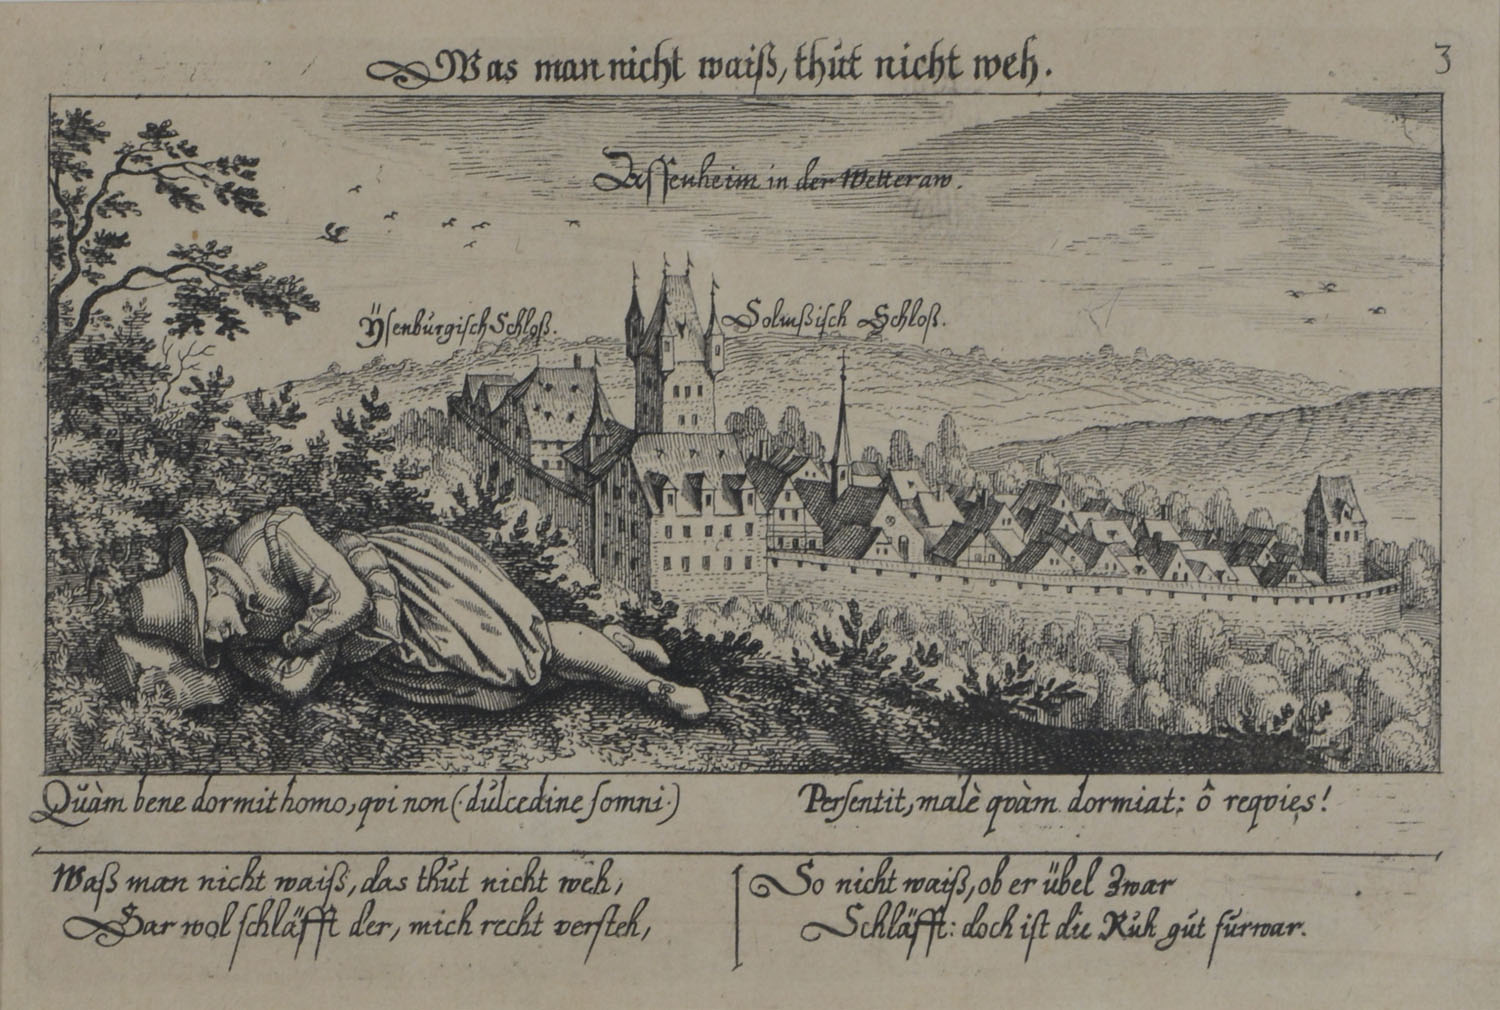 Was man nicht waiß, thut nicht weh.
3
Assenheim in der Wetteraw.
Ÿsenburgisch Schloß.
Solmßisch Schloß.
Quàm bene dormit homo, qvi non (dulcedine somni)
Persentit, malè qvàm dormiat: ô reqvies!
Waß man nicht waiß, das thut nicht weh,
Gar wol schläfft der, mich recht versteh,
So nicht waiß, ob er übel Zwar
Schläfft: doch ist die Ruh gut furwar.